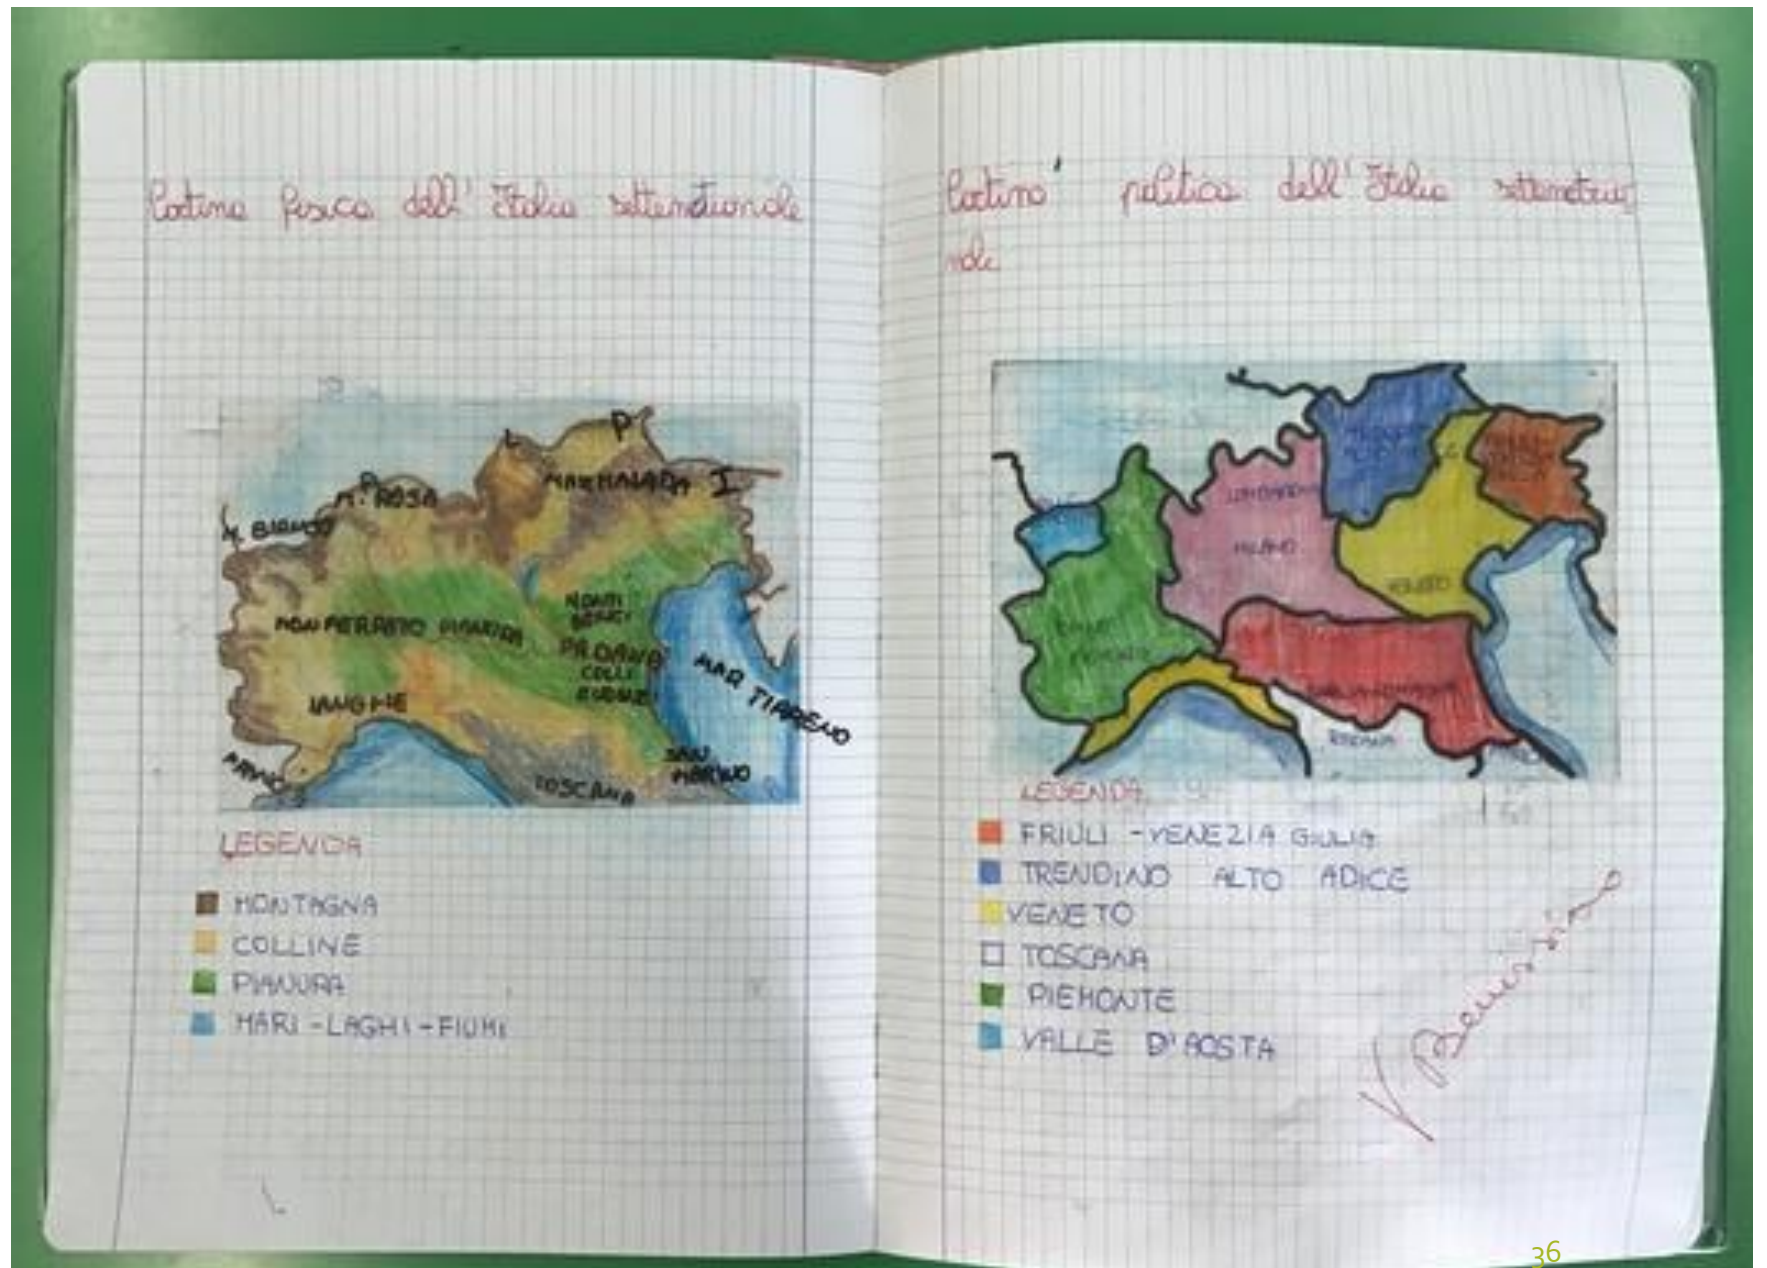 Cartina fisica dell'Italia settentrionale
M. BIANCO
M. ROSA
L
P.
MARMOLADA I
MONFERRATO PIANURA
MONTI
BERICI
PADANA
COLLI
EUGANEI
MAR TIRRENO
LANGHE
SAN
MARINO
TOSCANA
LEGENDA
MONTAGNA
COLLINE
PIANURA
MARI - LAGHI - FIUMI
Cartina politica dell'Italia settentrio
nale
LOMBARDIA
MILANO
VENETO
PIEMONTE
TOSCANA
LEGENDA
FRIULI - VENEZIA GIULIA
TRENDINO ALTO ADICE
VENETO
TOSCANA
PIEMONTE
VALLE D'AOSTA
V Benissimo
36